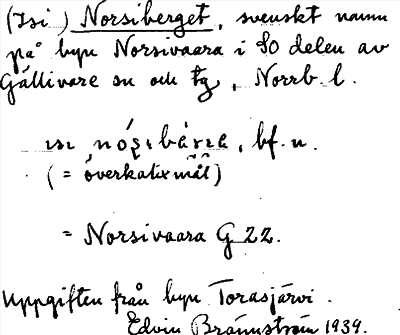 (Isi) Norsiberget, svenskt namn
på byn Norsivaara i SO delen av
Gällivare sn och tg, Norrb. l.
bf. n.
(= överkalixmål)
= Norsivaara G 22.
Uppgiften från byn Torasjärvi.
Edvin Brännström 1939.